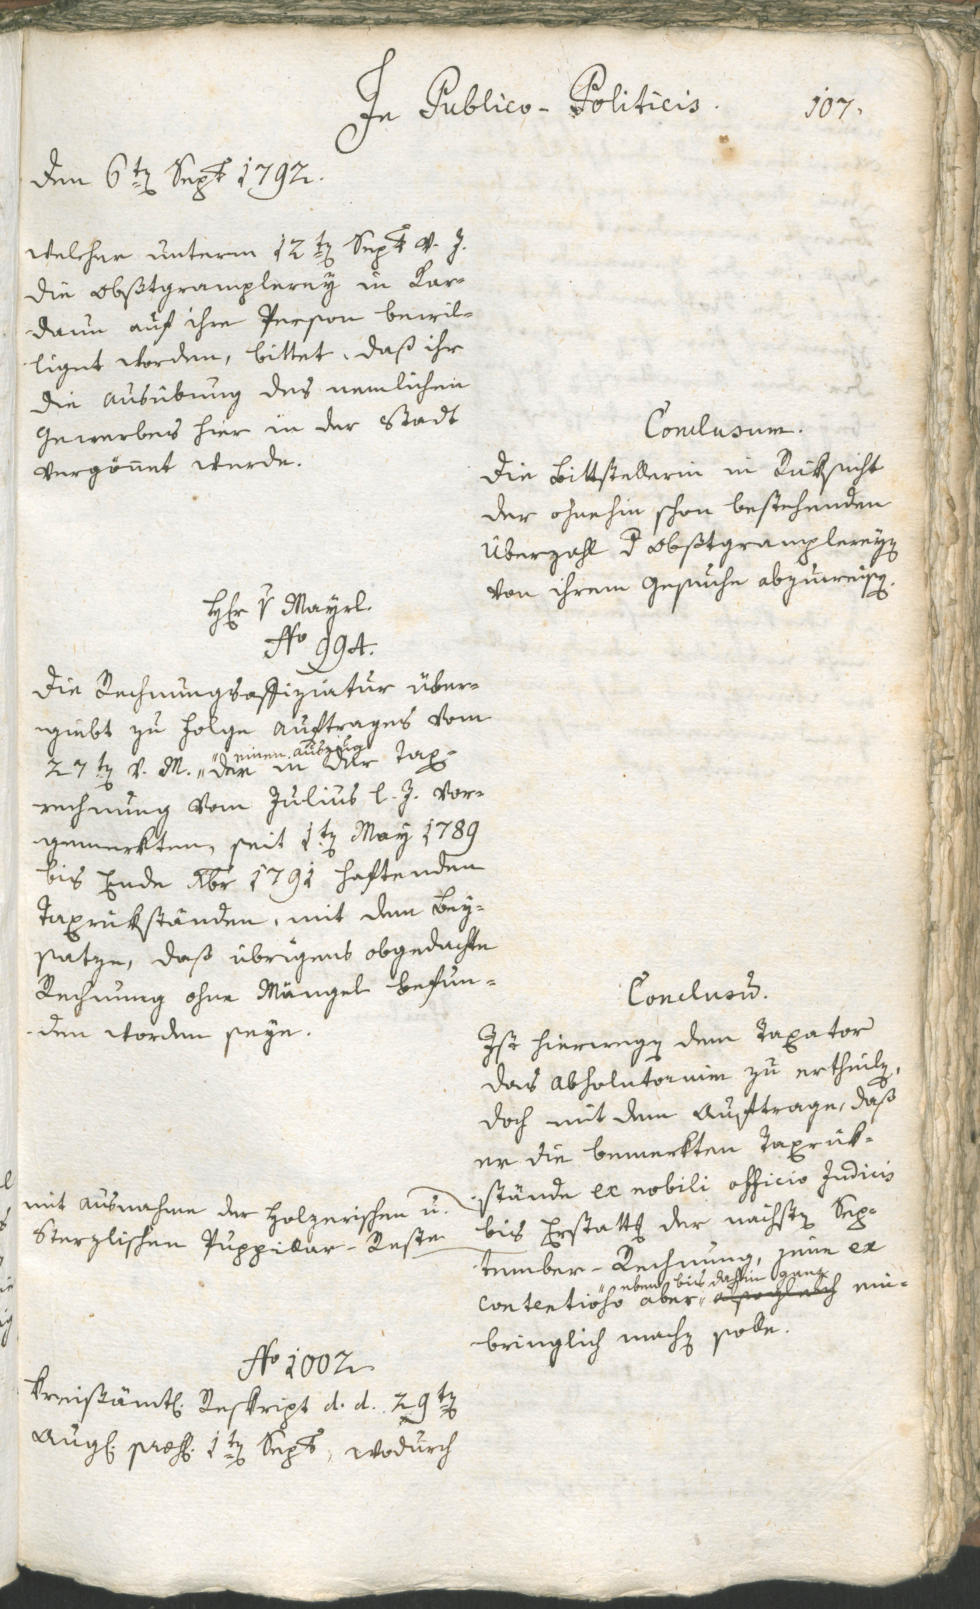 In Publico-Politicis.
107.
Den 6tn Sept 1792.
welcher unterm 12tn Sept v. J.
die Obßtgramplerey in Kar-
daun auf ihre Person bewil-
ligt worden, bittet, daß ihr
die Ausübung des nemlichen
Gewerbes hier in der Stadt
vergönnt werde.
Conclusum.
Die Bittstellerin in Rüksicht
der ohnehin schon bestehenden
Überzahl d Obßtgramplereyn
von ihrem Gesuche abzuweisn.
Hr v Mayrl.
No 994.
Die Rechnungsoffiziatur über-
giebt zu Folge Auftrages vom
einen Auszug
27tn v. M. der in der Tax-
rechnung vom Julius l. J. vor-
gemerkten, seit 1tn May 1789
bis Ende Xbr 1791 haftenden
Taxrükständen, mit dem Bey-
satze, daß übrigens obgedachte
Rechnung ohne Mängel befun-
den worden seye.
Conclusū.
Ist hierwegn dem Taxator
das Absolutorium zu ertheiln,
doch mit dem Auftrage, daß
er die bemerkten Taxrük-
stände ex nobili officio Judicis
bis Erstattg der nächstn Sep-
tember-Rechnung, jene ex
eben bis dahin ganz
contentioso aber alsogleich ein-
bringlich machn solle.
mit Ausnahme der Holzerischen u.
Sterzlischen Puppillar-Reste
No 1002
Kreißämtl. Reskript d. d. 29tn
Augl. præs. 1tn Sept, wodurch